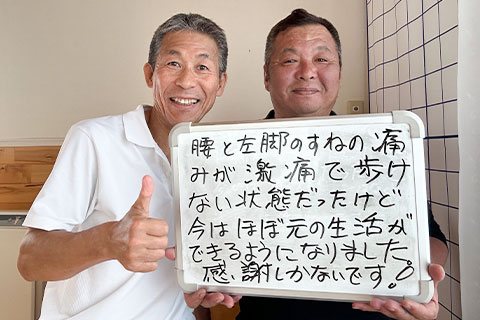 腰と左脚のすねの痛
みが激痛で歩け
ない状態だったけど
今はほぼ元の生活が
できるようになりました。
感謝しかないです!!